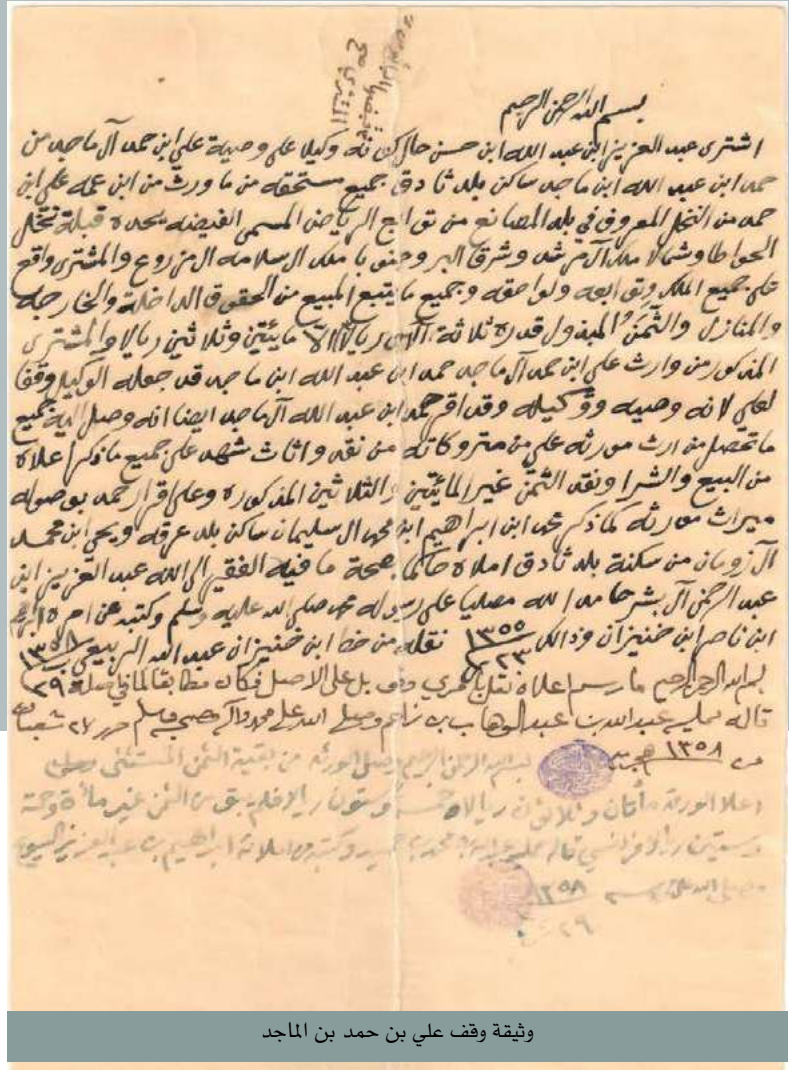 بسم الله الرحمن الرحيم
اشترى عبد العزيز ابن عبد الله ابن حسن حال كونه وكيلا على وصية علي ابن حمد آل ماجد من
حمد ابن عبد الله ابن ماجد ساكن بلد ثادق جميع مستحقه من ما ورث من ابن عمه علي ابن
حمد من النخل المعروف في بلد المصانع من توابع الرياض المسمى الفيضه يحده قبلة نخل
الحواطا وشمالا ملك آل مرشد وشرقا البر وجنوبا ملك ال سلامه ال مزروع والمشترى واقع
على جميع الملك وتوابعه ولواحقه وجميع ما يتبع المبيع من الحقوق الداخلة والخارجه
والمنازل والثمن المبذول قدره ثلاثة آلاف ريال الا مايئتين وثلاثين ريالا والمشترى
المذكور من وارث علي ابن حمد آل ماجد حمد ابن عبد الله ابن ماجد قد جعله الوكيل وقفا
لعلي لانه وصيه ووكيله وقد اقر حمد ابن عبد الله آل ماجد ايضا انه وصل اليه جميع
ما تحصل من ارث مورثه علي من متروكاته من نقد واثاث شهد على جميع ما ذكر اعلاه
من البيع والشرا ونقد الثمن غير المائيتين والثلاثين المذكوره وعلى اقرار حمد بوصوله
ميراث مورثه كما ذكر محمد ابن ابراهيم ابن محمد ال سليمان ساكن بلد عرقه ويحي ابن محمد
آل زومان من سكنة بلد ثادق املاه حاكما بصحة ما فيه الفقير الى الله عبد العزيز ابن
عبد الرحمن آل بشر حامدا لله مصليا على رسوله محمد صلى الله عليه وسلم وكتبه عن امره ابراهيم
ابن ناصر ابن خنيزان وذالك ٢٣ ١٣٥٥ نقله من خط ابن خنيزان عبد الله الربيعي ١٣٥٨
بسم الله الرحمن الرحيم ما رسم اعلاه نقل وقوبل على الاصل فكان مطابقا لما في اصله ٢٩
قاله ممليه عبد الله بن عبد الوهاب بن زاحم وصلى الله على محمد وآله وصحبه وسلم حرر ٢٧ شعبان
١٣٥٨ هجرية
بسم الله الرحمن الرحيم وصل الورثه من بقية الثمن المستثنى
اعلا الورقة مأتان وثلاثون ريالا خمسة وستون ريالا فلم يبق من الثمن غير مائة وخمسة
وستين ريالا فرانسي قاله ممليه عبد الله وكتبه من املائه ابراهيم بن عبد العزيز
وصلى الله على ١٣٥٨
٢٩
وثيقة وقف علي بن حمد بن الماجد